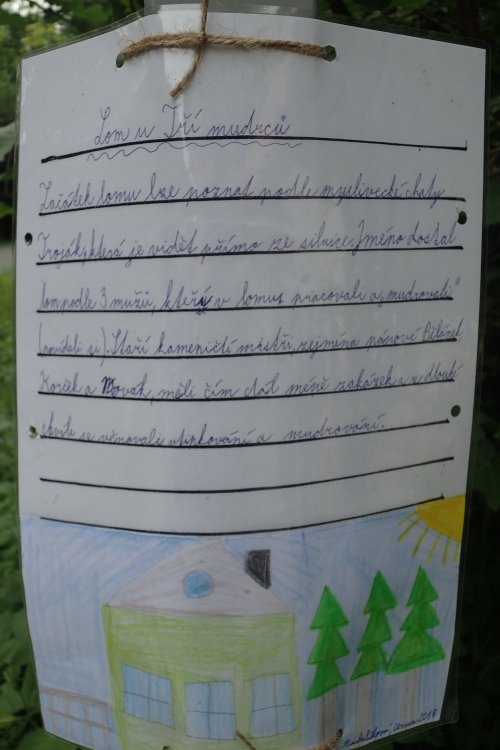 Lom u Tří mudrců
Začátek lomu lze poznat podle myslivecké chaty
Troják, která je vidět přímo ze silnice. Jméno dostal
lom podle 3 mužů, kteří v lomu pracovali a „mudrovali“
(povídali si). Staří kameničtí mistři, zejména pánové Bělánek
a Novák, měli čím dál méně zakázek a z dlouhé
chvíle se věnovali vtipkování a mudrování.
2018